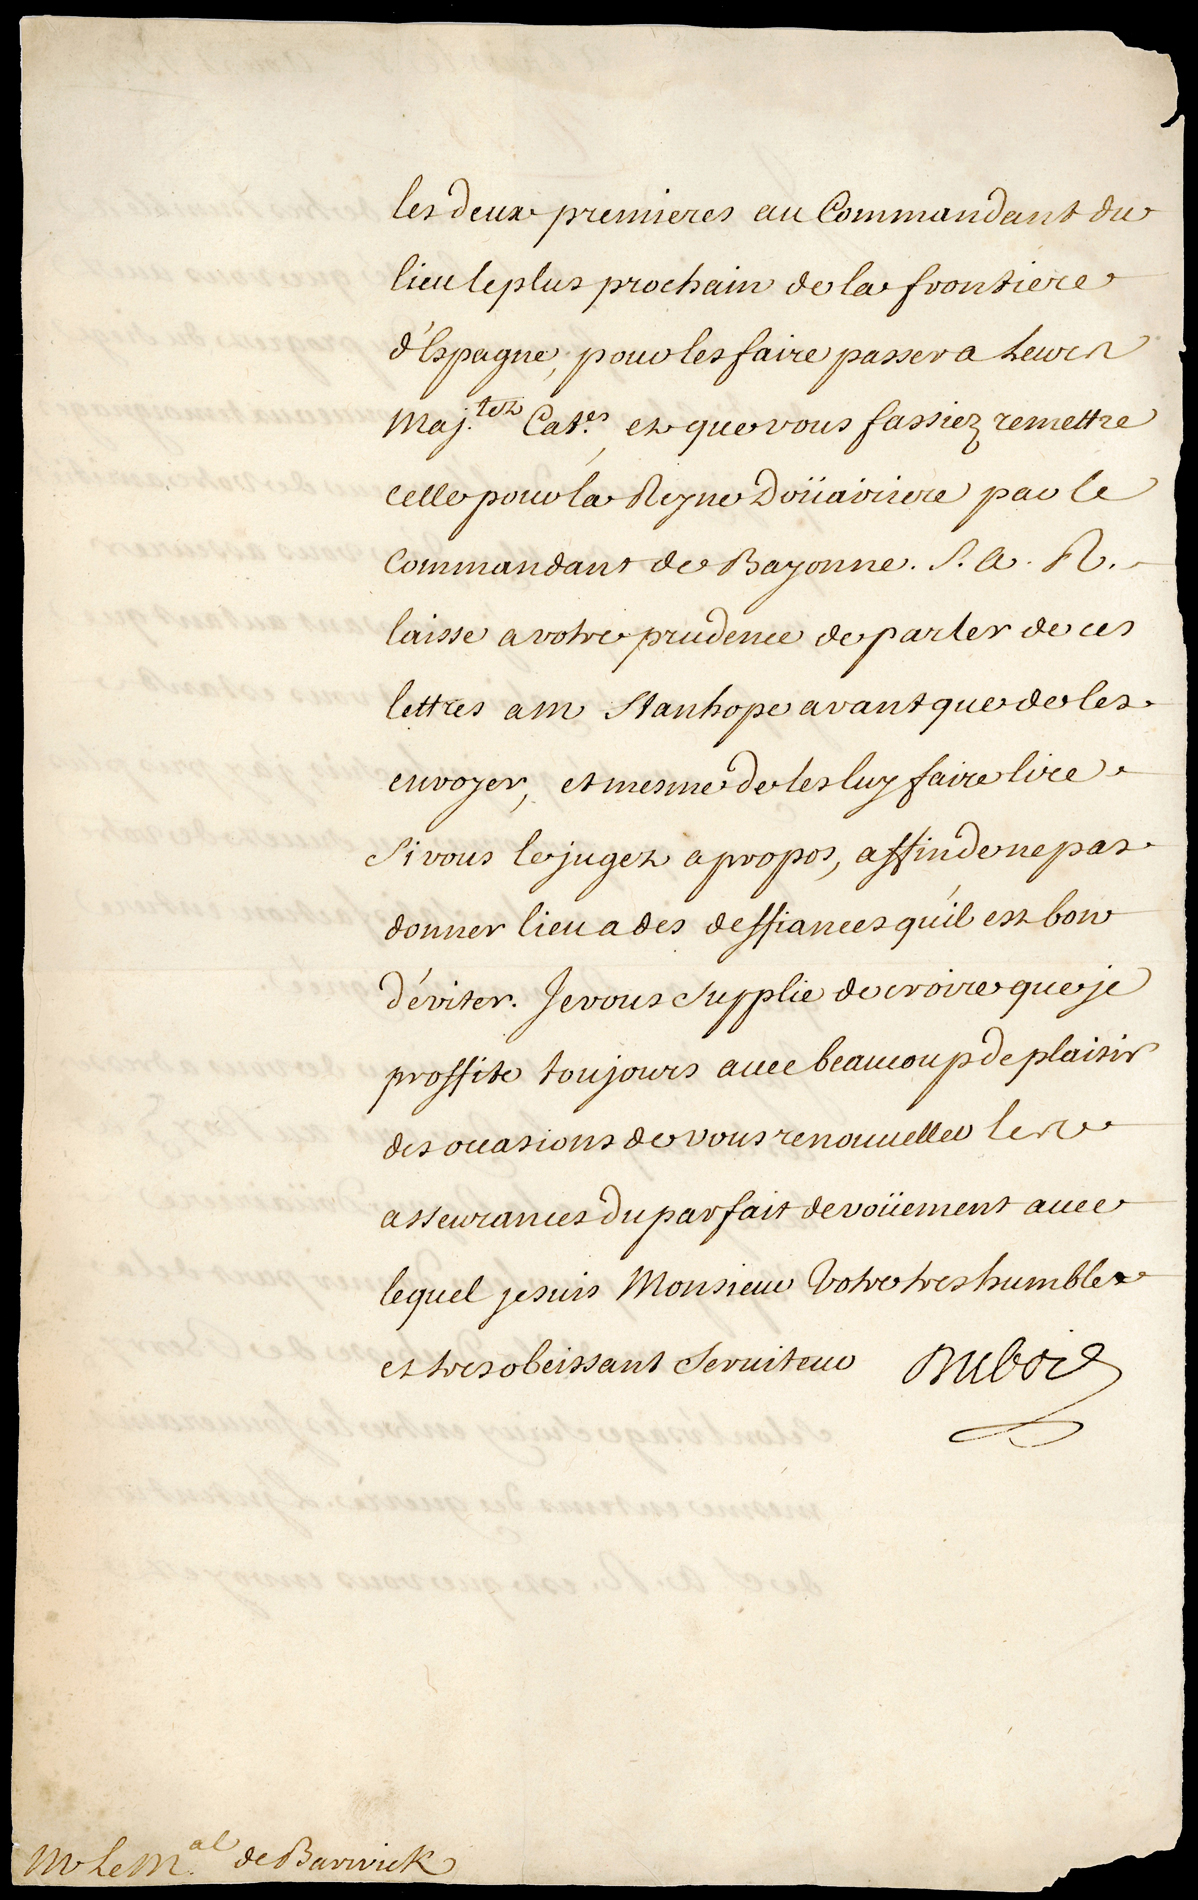 les deux premieres au Commandant du
lieu le plus prochain de la frontiere
d'Espagne, pour les faire passer a Leurs
Maj.tez Cat.es, et que vous fassiez remettre
celle pour la Reyne Doüairiere par le
Commandant de Bayonne. S. A. R.
laisse a votre prudence de parler de ces
lettres a M Stanhope avant que de les
envoyer, et mesme de les luy faire lire
Si vous le jugez a propos, affin de ne pas
donner lieu a des deffiances qu'il est bon
d'éviter. Je vous supplie de croire que je
proffite toujours avec beaucoup de plaisir
des occasions de vous renouveller les
asseurances du parfait devoüement avec
lequel je suis Monsieur Votre tres humble
et tres obeissant Serviteur Dubois
Mr Le M.al de Barwick